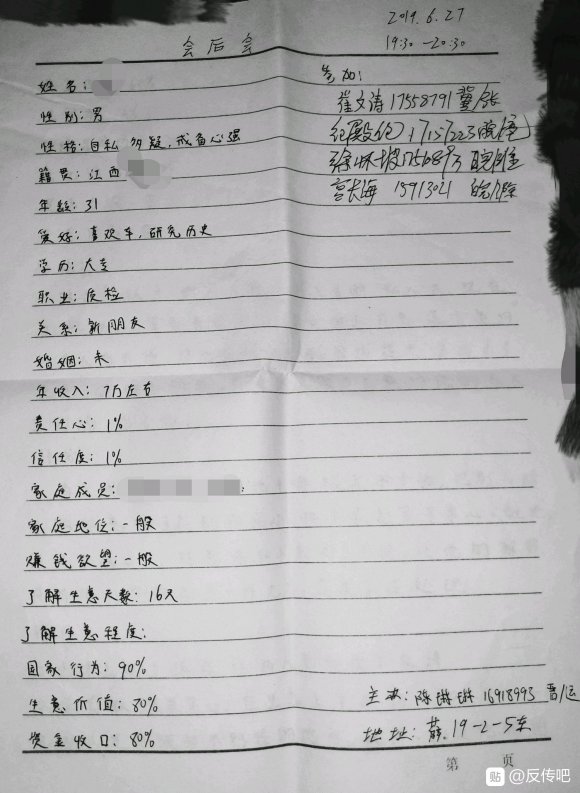 2019.6.27
会后会
19:30-20:30
姓名:
性别:男
性格:自私 多疑,戒备心强
籍贯:江西
年龄:31
爱好:喜欢车,研究历史
学历:大专
职业:质检
关系:新朋友
婚姻:未
年收入:7万左右
责任心:1%
信任度:1%
家庭成员:
家庭地位:一般
赚钱欲望:一般
了解生意天数:16天
了解生意程度:
国家行为:90%
生意价值:80%
资金收口:80%
参加:
崔文涛 17558791 冀/张
纪殿伦
徐怀坡
宫长海 15913021 皖/滁
主次:陈琳琳 16918993 晋/运
地址: 19-2-5东
第 页
贴 @反传吧